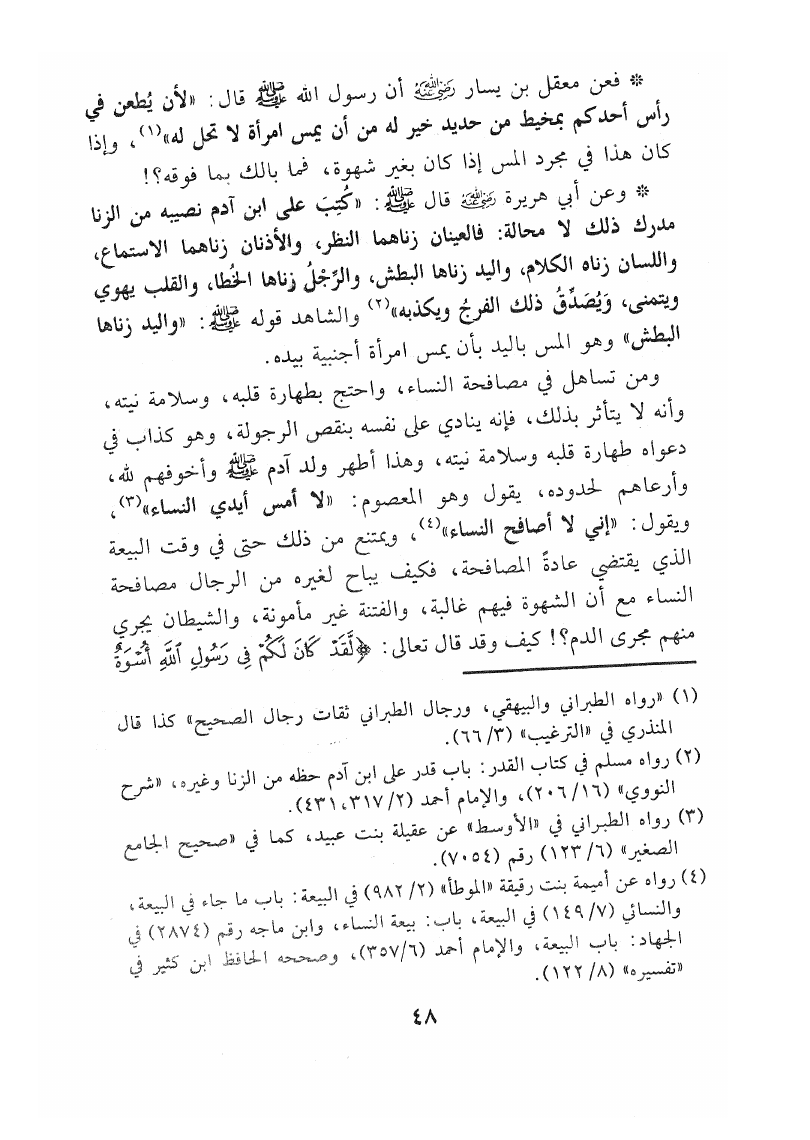 * فعن معقل بن يسار رضي الله عنه أن رسول الله ﷺ قال: «لأن يُطعن في
رأس أحدكم بمخيط من حديد خير له من أن يمس امرأة لا تحل له»(١)، وإذا
كان هذا في مجرد المس إذا كان بغير شهوة، فما بالك بما فوقه؟!
* وعن أبي هريرة رضي الله عنه قال ﷺ: «كُتِبَ على ابن آدم نصيبه من الزنا
مدرك ذلك لا محالة: فالعينان زناهما النظر، والأذنان زناهما الاستماع،
واللسان زناه الكلام، واليد زناها البطش، والرِّجْلُ زناها الخُطا، والقلب يهوي
ويتمنى، وَيُصَدِّقُ ذلك الفرجُ ويكذبه»(٢) والشاهد قوله ﷺ: «واليد زناها
البطش» وهو المس باليد بأن يمس امرأة أجنبية بيده.
ومن تساهل في مصافحة النساء، واحتج بطهارة قلبه، وسلامة نيته،
وأنه لا يتأثر بذلك، فإنه ينادي على نفسه بنقص الرجولة، وهو كذاب في
دعواه طهارة قلبه وسلامة نيته، وهذا أطهر ولد آدم ﷺ وأخوفهم لله،
وأرعاهم لحدوده، يقول وهو المعصوم: «لا أمس أيدي النساء»(٣)،
ويقول: «إني لا أصافح النساء»(٤)، ويمتنع من ذلك حتى في وقت البيعة
الذي يقتضي عادةً المصافحة، فكيف يباح لغيره من الرجال مصافحة
النساء مع أن الشهوة فيهم غالبة، والفتنة غير مأمونة، والشيطان يجري
منهم مجرى الدم؟! كيف وقد قال تعالى: ﴿لَّقَدْ كَانَ لَكُمْ فِي رَسُولِ ٱللَّهِ أُسْوَةٌ
(١) «رواه الطبراني والبيهقي، ورجال الطبراني ثقات رجال الصحيح» كذا قال
المنذري في «الترغيب» (٣/ ٦٦).
(٢) رواه مسلم في كتاب القدر: باب قدر على ابن آدم حظه من الزنا وغيره، «شرح
النووي» (١٦/ ٢٠٦)، والإمام أحمد (٢/ ٣١٧، ٤٣١).
(٣) رواه الطبراني في «الأوسط» عن عقيلة بنت عبيد، كما في «صحيح الجامع
الصغير» (٦/ ١٢٣) رقم (٧٠٥٤).
(٤) رواه عن أميمة بنت رقيقة «الموطأ» (٢/ ٩٨٢) في البيعة: باب ما جاء في البيعة،
والنسائي (٧/ ١٤٩) في البيعة، باب: بيعة النساء، وابن ماجه رقم (٢٨٧٤) في
الجهاد: باب البيعة، والإمام أحمد (٦/ ٣٥٧)، وصححه الحافظ ابن كثير في
«تفسيره» (٨/ ١٢٢).
٤٨